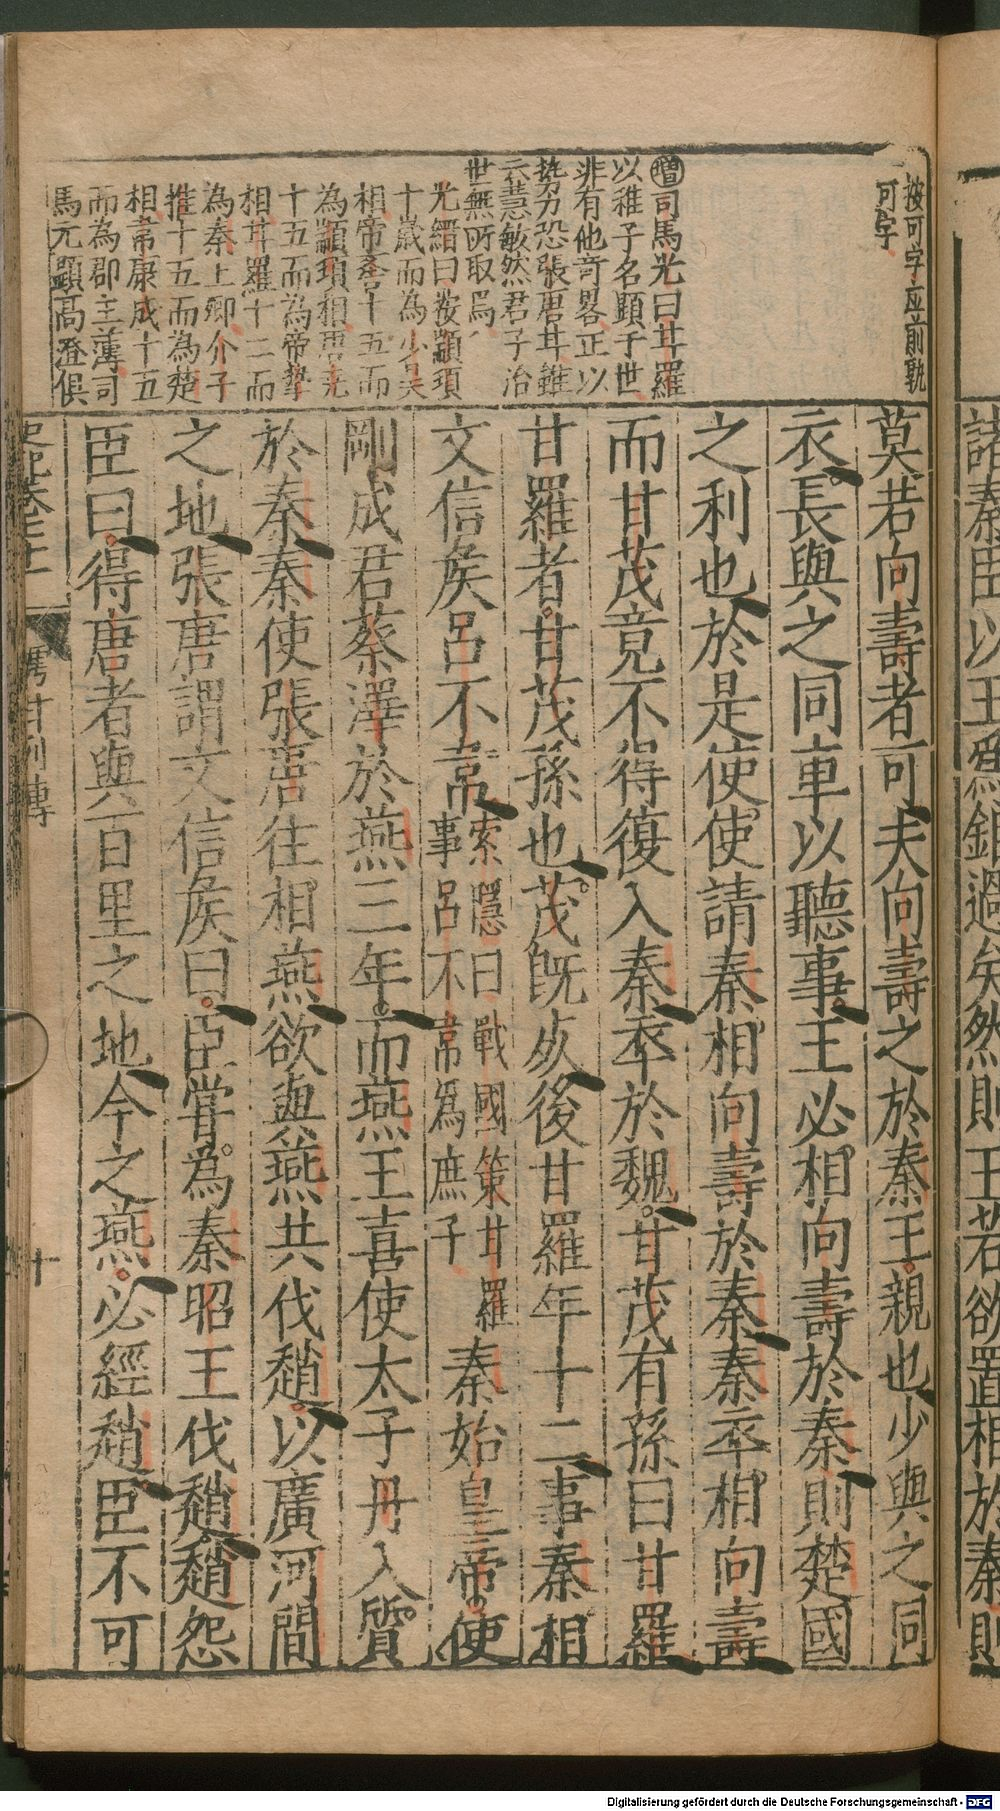 諸秦臣以王爲鉅過矣然則王若欲置相於秦則
按可字应前孰
可字
增司馬光曰甘羅
以稚子名顯于世
非有他奇畧正以
势力恐張唐耳雖
云慧敏然君子治
世無所取焉
光縉曰按顓頊
十歲而為少昊
相帝嚳十五而
為顓頊相唐堯
十五而為帝摯
相甘羅十二而
為秦上卿介子
推十五而為楚
相韋康成十五
而為郡主薄司
馬元顯高澄俱
莫若向壽者可夫向壽之於秦王親也少與之同
衣長與之同車以聽事王必相向壽於秦則楚國
之利也於是使使請秦相向壽於秦秦卒相向壽
而甘茂竟不得復入秦卒於魏甘茂有孫曰甘羅
甘羅者甘茂孫也茂既死後甘羅年十二事秦相
文信矦呂不韋索隱曰戰國策甘羅事呂不韋爲庶子秦始皇帝使
剛成君蔡澤於燕三年而燕王喜使太子丹入質
於秦秦使張唐往相燕欲與燕共伐趙以廣河間
之地張唐謂文信矦曰臣嘗為秦昭王伐趙趙怨
臣曰得唐者與百里之地今之燕必經趙臣不可
史記卷七十一
樗甘列傳
十
Digitalisierung gefördert durch die Deutsche Forschungsgemeinschaft - DFG